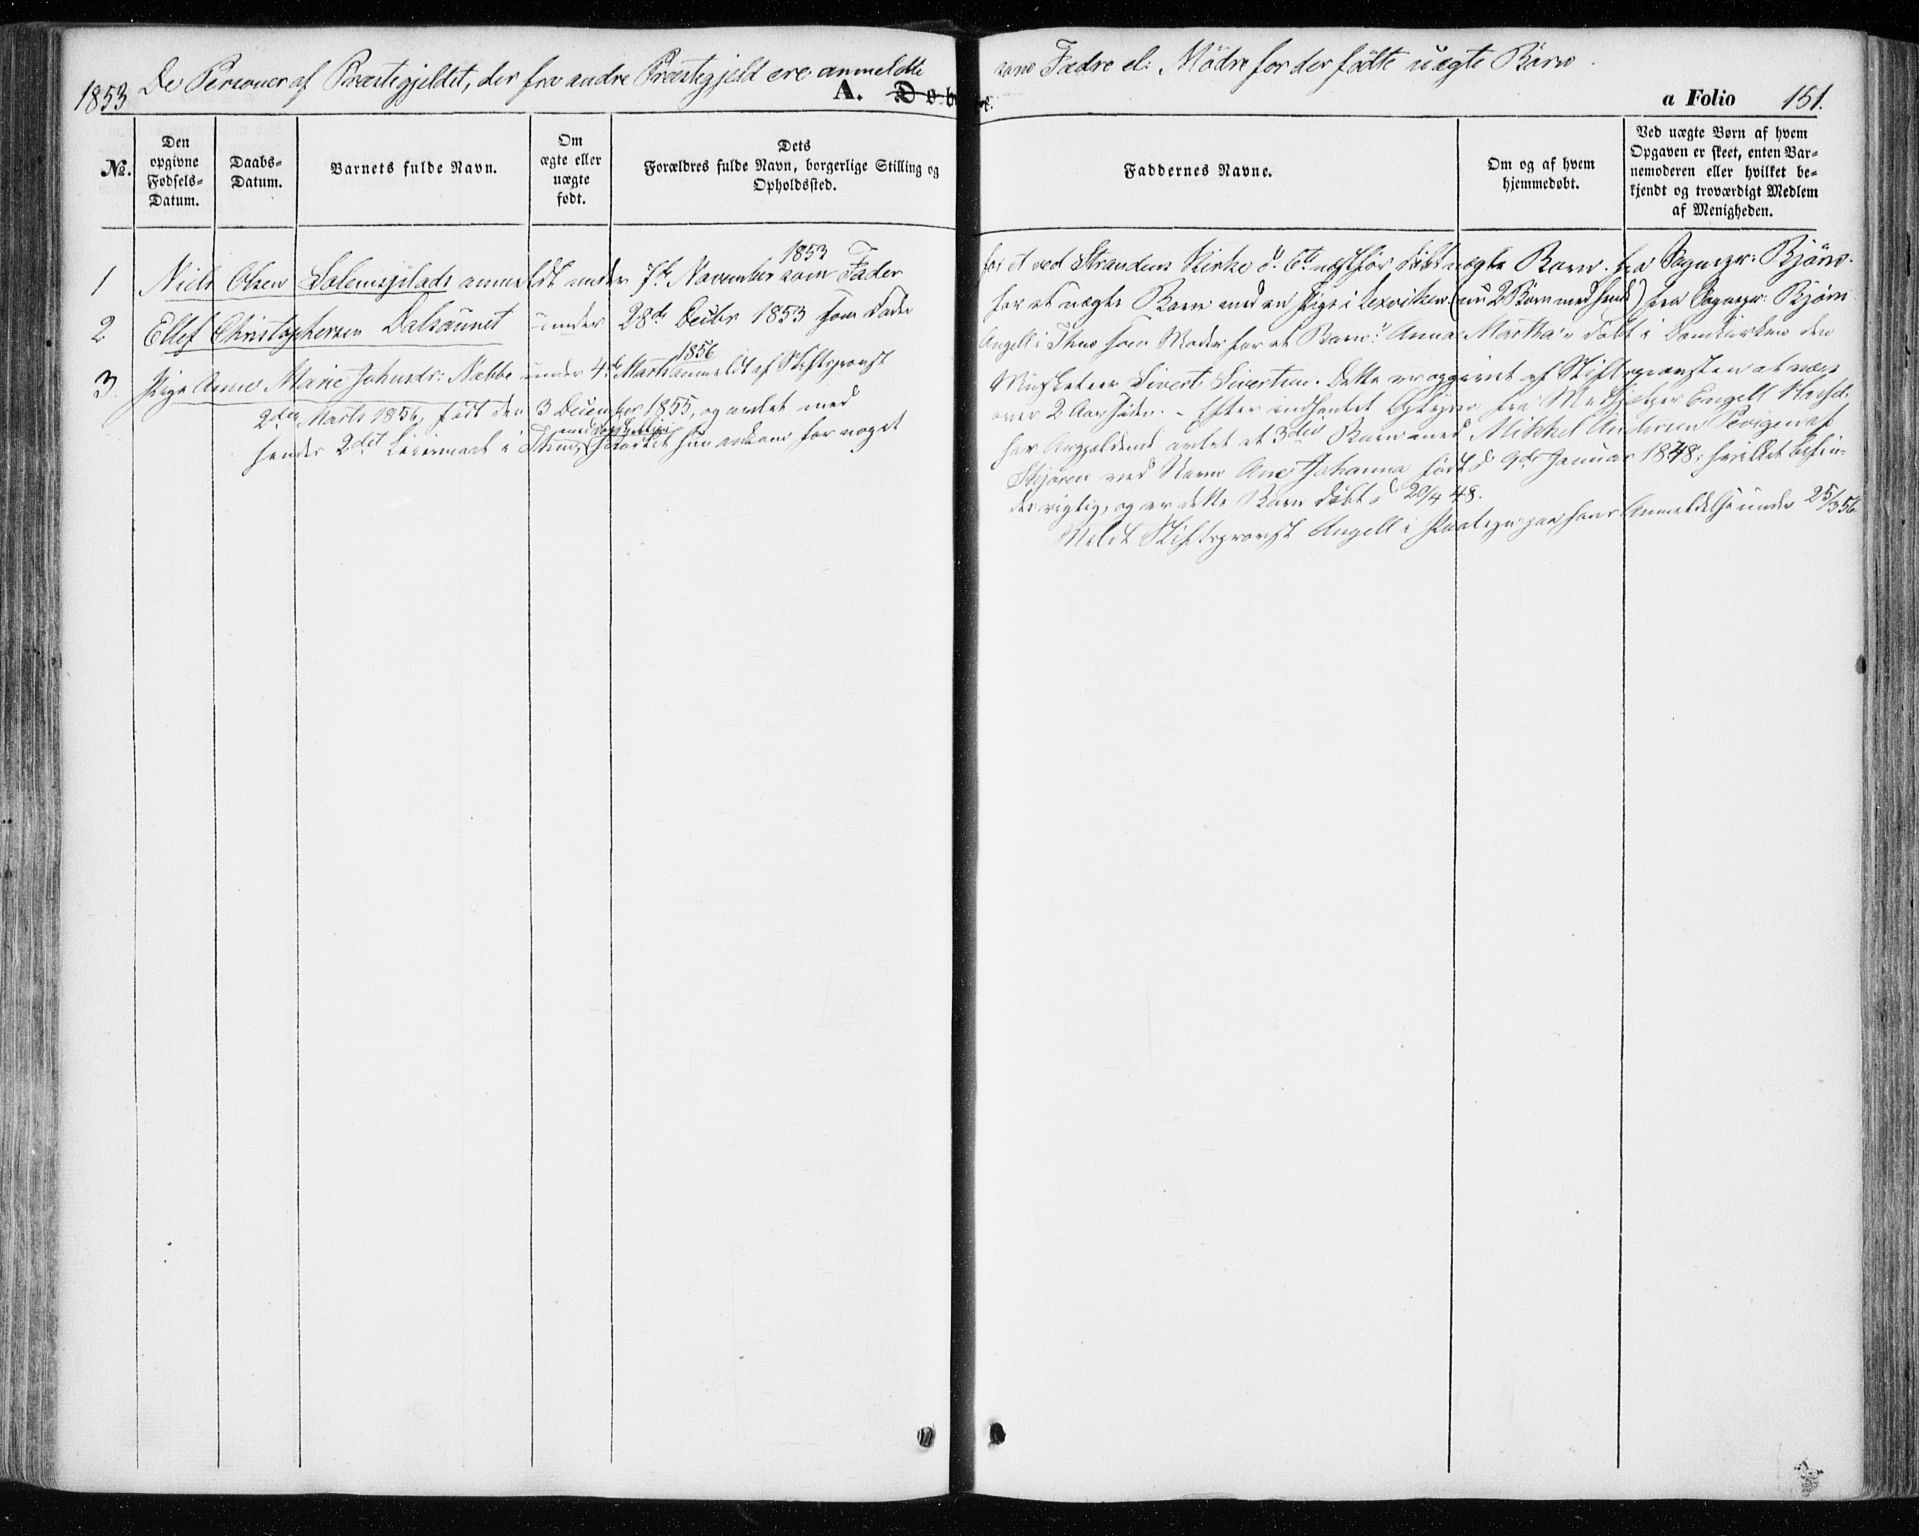 1853
De Personer af Præstegjeldet, der fra andre Præstegjeld ere anmeldte
som Fædre el: Mødre for der fødte uægte Børn.
A. Døbte.
a Folio 151.
No.
Den opgivne Fødsels-Datum.
Daabs-Datum.
Barnets fulde Navn.
Om ægte eller uægte født.
Dets Forældres fulde Navn, borgerlige Stilling og Opholdssted.
Faddernes Navne.
Om og af hvem hjemmedøbt.
Ved uægte Børn af hvem Opgaven er skeet, enten Barnemoderen eller hvilket bekjendt og troværdigt Medlem af Menigheden.
1853
1 Niels Olsen anmeldt under 7de November som Fader
for et ved Strandens Kirke d. 6te døbt uægte Barn. fra Sognepr: Bjørn.
2 Ellef Christophersen Dalsaunet under 28de Decbr 1853 som Fader
for et uægte Barn med en Pige i Lexviken (nu 2 Børn med hende) fra Sognepr: Bjørn
1856
3. Pige Anne Marie Johnsdr: Næbbe under 4de Marts Anmeldt af Stiftsprovst
Angell i Thjem som Moder for et Barn: Anna Martha døbt i Domkirken den
2den Marts 1856, født den 3 December 1855, og avlet med
Musketeer Sivert Sivertsen. Dette er opgivet af Stiftsprovsten at være
hendes 2det Leiermaal i Thjem, hun ankom for noget
over 2 Aar siden. - Efter indhentet fra Engell
har avlet et 3die Barn med Mikkel Andersen
med Navn Ane Johanna født d. 9de Januar 1848; hvilket befin-
des rigtig, og er dette Barn døbt d. 20/4 48.
Meldt Stiftsprovst Angell i paa hans Anmeldelse under 25/3 56